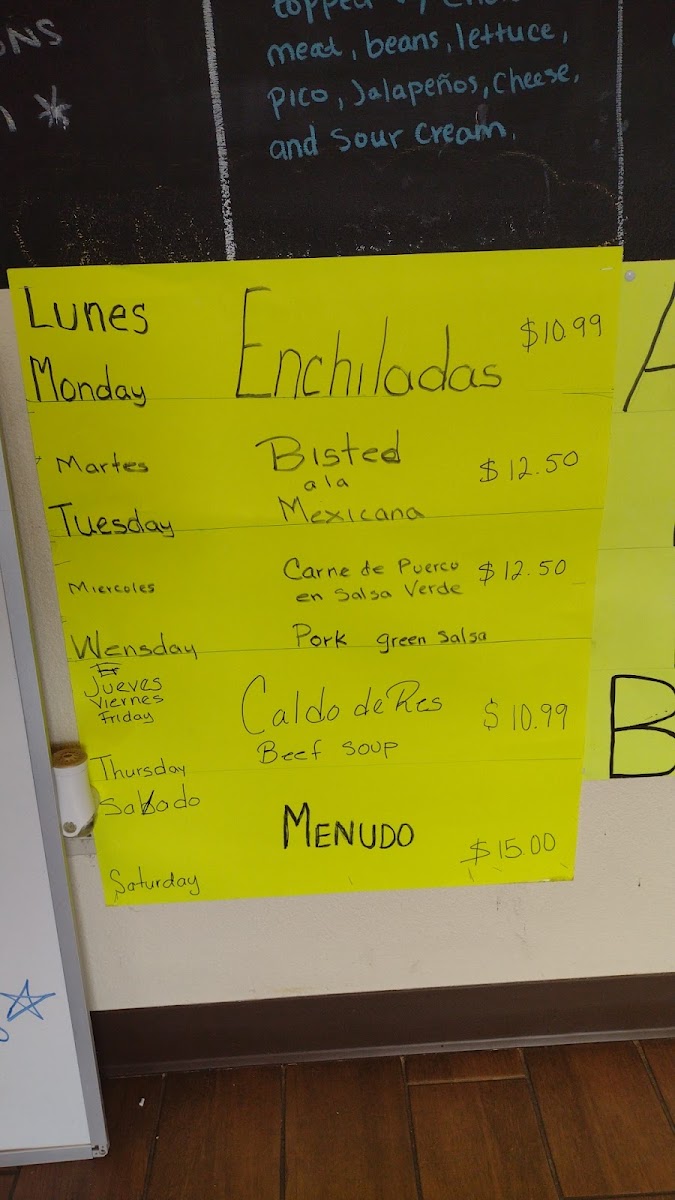 ONS
meat, beans, lettuce,
Pico, Jalapeños, Cheese,
and Sour Cream.
Lunes
Monday
Enchiladas
$10.99
Martes
Tuesday
Bisted
a la
Mexicana
$12.50
Miercoles
Wensday
Carne de Puerco
en Salsa Verde
$12.50
Pork green Salsa
Jueves
Viernes
Friday
Thursday
Caldo de Res
Beef Soup
$10.99
Sabado
Saturday
MENUDO
$15.00
A
B